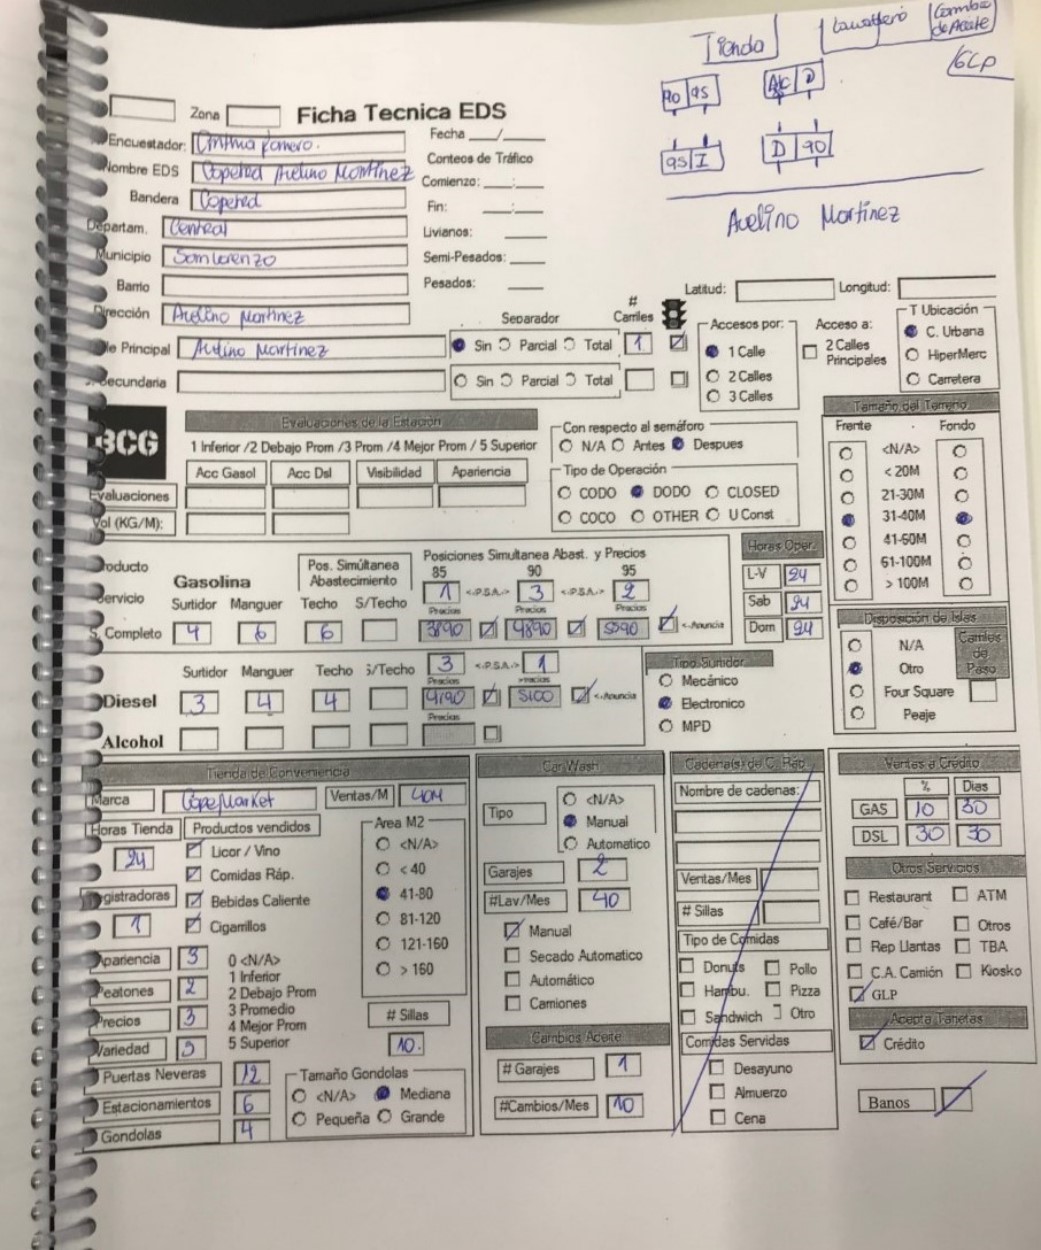 Tienda
Lavadero
Cambio de Aceite
GLP
90 95
A/C D
95 I
D 90
Avelino Martinez
Zona
Ficha Tecnica EDS
Encuestador: Cinthia Romero.
Fecha ___/___
Nombre EDS Copetrol Avelino Martinez
Conteos de Tráfico
Bandera Copetrol
Comienzo: ___:___
Departam. Central
Fin: ___:___
Livianos: ____
Municipio San Lorenzo
Semi-Pesados: ____
Barrio
Pesados: ____
Latitud:
Longitud:
Dirección Avelino Martinez
Separador
# Carriles
Accesos por:
Acceso a:
T Ubicación
le Principal Avelino Martinez
Sin Parcial Total 1
1 Calle
2 Calles Principales
C. Urbana
HiperMerc
Secundaria
Sin Parcial Total
2 Calles
Carretera
3 Calles
BCG
Evaluaciones de la Estación
1 Inferior /2 Debajo Prom /3 Prom /4 Mejor Prom / 5 Superior
Acc Gasol Acc Dsl Visibilidad Apariencia
Evaluaciones
Vol (KG/M):
Con respecto al semáforo
N/A Antes Despues
Tipo de Operación
CODO DODO CLOSED
COCO OTHER U Const
Tamaño del Terreno
Frente Fondo
<N/A>
< 20M
21-30M
31-40M
41-60M
61-100M
> 100M
Producto
Gasolina
Pos. Simúltanea Abastecimiento
Posiciones Simultanea Abast. y Precios
85 90 95
Servicio
Surtidor Manguer Techo S/Techo
1 <-P.S.A.-> 3 <-P.S.A.-> 2
Precios Precios Precios
S. Completo 4 6 6 3890 4890 5090 <-Anuncia
Horas Oper.
L-V 24
Sab 24
Dom 24
Disposición de Islas
N/A
Otro
Four Square
Peaje
Carriles de Paso
Surtidor Manguer Techo S/Techo
3 <-P.S.A.-> 1
Precios Precios
Diesel 3 4 4 4190 5100 <-Anuncia
Precios
Alcohol
Tipo Surtidor
Mecánico
Electronico
MPD
Tienda de Conveniencia
Marca CopeMarket
Ventas/M 40M
Horas Tienda
24
Productos vendidos
Licor / Vino
Comidas Ráp.
Bebidas Caliente
Cigarrillos
Registradoras
1
Area M2
<N/A>
< 40
41-80
81-120
121-160
> 160
Apariencia 3
Peatones 2
Precios 3
Variedad 3
0 <N/A>
1 Inferior
2 Debajo Prom
3 Promedio
4 Mejor Prom
5 Superior
# Sillas
10.
Puertas Neveras 12
Estacionamientos 6
Gondolas 4
Tamaño Gondolas
<N/A> Mediana
Pequeña Grande
Car Wash
Tipo
<N/A>
Manual
Automatico
Garajes 2
#Lav/Mes 40
Manual
Secado Automatico
Automático
Camiones
Cambios Aceite
# Garajes 1
#Cambios/Mes 10
Cadena(s) de C. Ráp.
Nombre de cadenas:
Ventas/Mes
# Sillas
Tipo de Comidas
Donuts Pollo
Hambu. Pizza
Sandwich Otro
Comidas Servidas
Desayuno
Almuerzo
Cena
Ventas a Crédito
% Dias
GAS 10 30
DSL 30 30
Otros Servicios
Restaurant ATM
Café/Bar Otros
Rep Llantas TBA
C.A. Camión Kiosko
GLP
Acepta Tarjetas
Crédito
Banos